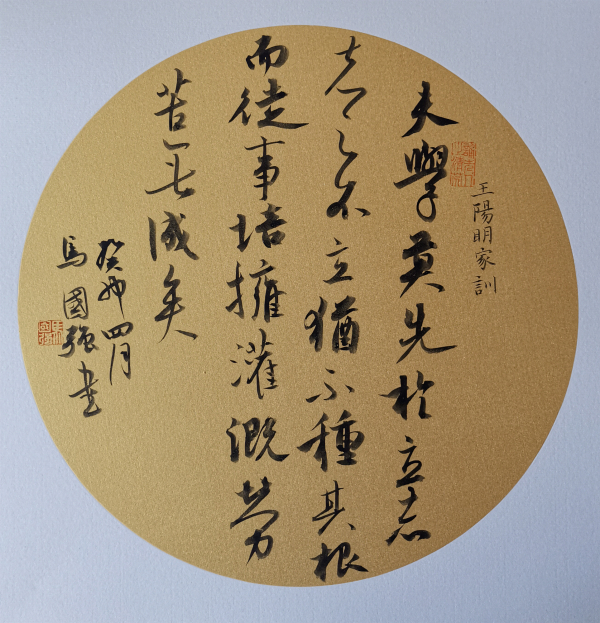 王陽明家訓
夫學莫先於立志
志之不立猶不種其根
而徒事培擁灌溉勞
苦無成矣
癸卯四月
馬國強書